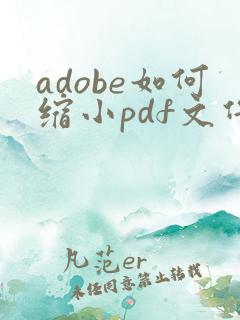 adobe如何
缩小pdf文件
凡范er
未经同意禁止转载